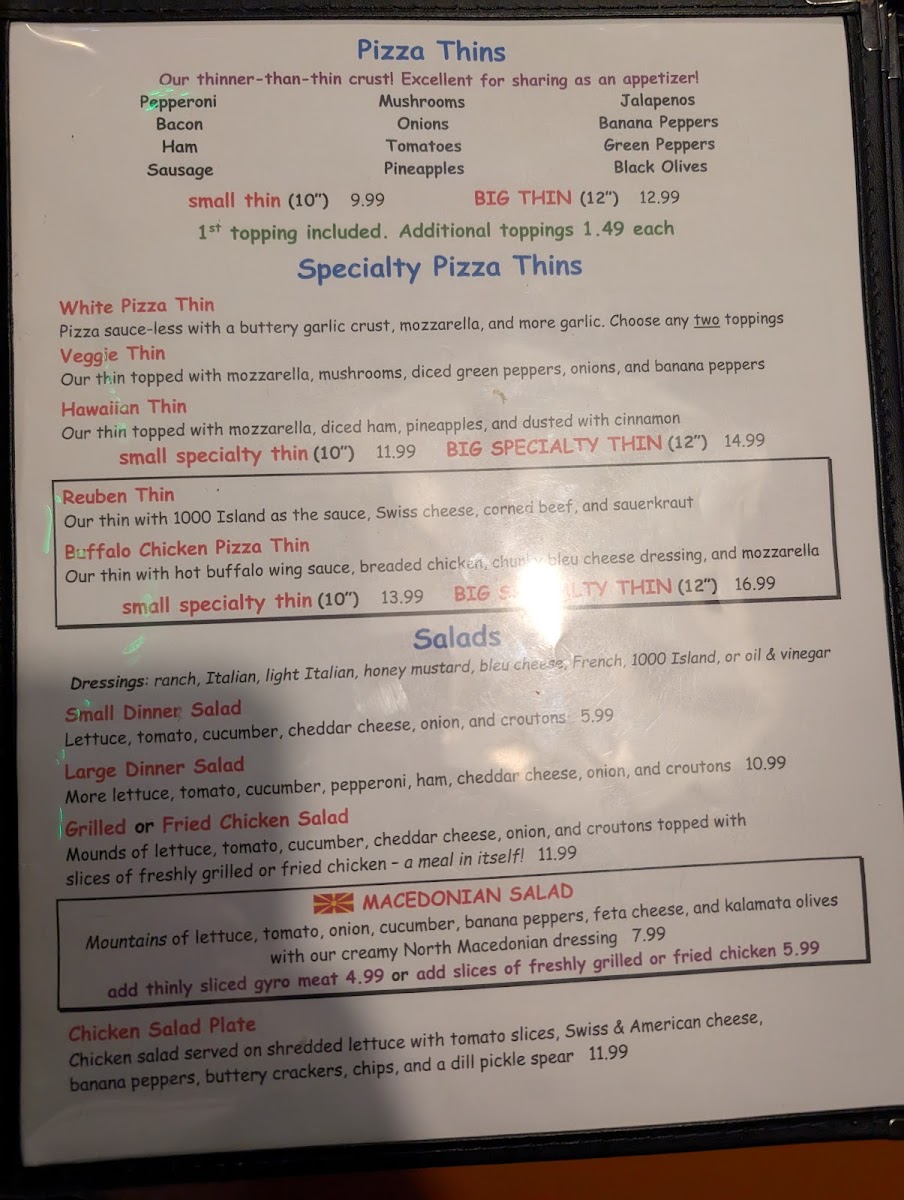 Pizza Thins
Our thinner-than-thin crust! Excellent for sharing as an appetizer!
Pepperoni Mushrooms Jalapenos
Bacon Onions Banana Peppers
Ham Tomatoes Green Peppers
Sausage Pineapples Black Olives
small thin (10") 9.99 BIG THIN (12") 12.99
1st topping included. Additional toppings 1.49 each
Specialty Pizza Thins
White Pizza Thin
Pizza sauce-less with a buttery garlic crust, mozzarella, and more garlic. Choose any two toppings
Veggie Thin
Our thin topped with mozzarella, mushrooms, diced green peppers, onions, and banana peppers
Hawaiian Thin
Our thin topped with mozzarella, diced ham, pineapples, and dusted with cinnamon
small specialty thin (10") 11.99 BIG SPECIALTY THIN (12") 14.99
Reuben Thin
Our thin with 1000 Island as the sauce, Swiss cheese, corned beef, and sauerkraut
Buffalo Chicken Pizza Thin
Our thin with hot buffalo wing sauce, breaded chicken, chunky bleu cheese dressing, and mozzarella
small specialty thin (10") 13.99 BIG SPECIALTY THIN (12") 16.99
Salads
Dressings: ranch, Italian, light Italian, honey mustard, bleu cheese, French, 1000 Island, or oil & vinegar
Small Dinner Salad
Lettuce, tomato, cucumber, cheddar cheese, onion, and croutons 5.99
Large Dinner Salad
More lettuce, tomato, cucumber, pepperoni, ham, cheddar cheese, onion, and croutons 10.99
Grilled or Fried Chicken Salad
Mounds of lettuce, tomato, cucumber, cheddar cheese, onion, and croutons topped with
slices of freshly grilled or fried chicken – a meal in itself! 11.99
MACEDONIAN SALAD
Mountains of lettuce, tomato, onion, cucumber, banana peppers, feta cheese, and kalamata olives
with our creamy North Macedonian dressing 7.99
add thinly sliced gyro meat 4.99 or add slices of freshly grilled or fried chicken 5.99
Chicken Salad Plate
Chicken salad served on shredded lettuce with tomato slices, Swiss & American cheese,
banana peppers, buttery crackers, chips, and a dill pickle spear 11.99